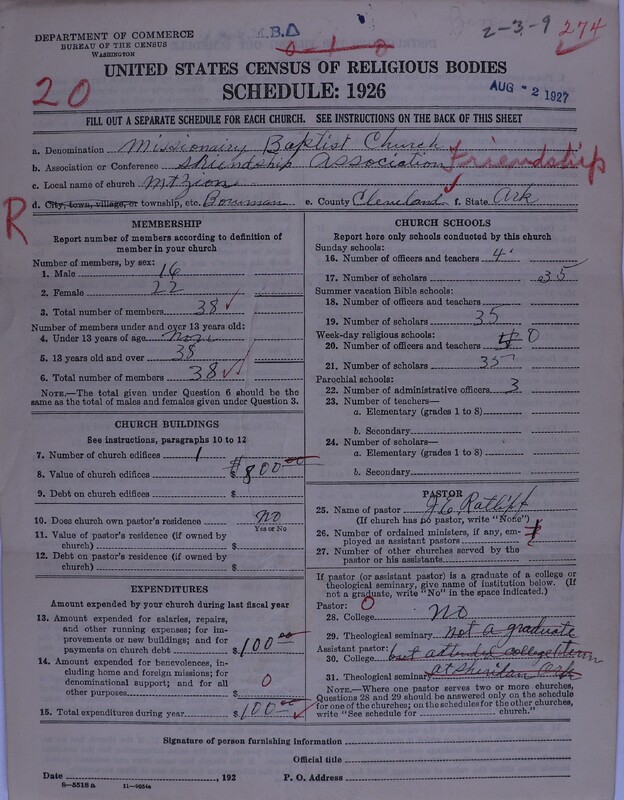 A.B.A
2-3-9 274
DEPARTMENT OF COMMERCE
BUREAU OF THE CENSUS
WASHINGTON
0-1-0
UNITED STATES CENSUS OF RELIGIOUS BODIES
20
SCHEDULE: 1926
AUG -2 1927
FILL OUT A SEPARATE SCHEDULE FOR EACH CHURCH. SEE INSTRUCTIONS ON THE BACK OF THIS SHEET
a. Denomination Missionairy Baptist Church
b. Association or Conference Friendship Association Friendship
c. Local name of church Mt Zion
R
d. City, town, village, or township, etc. Bowman e. County Cleveland f. State Ark
MEMBERSHIP
Report number of members according to definition of
member in your church
Number of members, by sex:
1. Male 16
2. Female 22
3. Total number of members 38
Number of members under and over 13 years old:
4. Under 13 years of age none
5. 13 years old and over 38
6. Total number of members 38
NOTE.—The total given under Question 6 should be the
same as the total of males and females given under Question 3.
CHURCH BUILDINGS
See instructions, paragraphs 10 to 12
7. Number of church edifices 1
8. Value of church edifices $800.00
9. Debt on church edifices $
10. Does church own pastor's residence no
Yes or No
11. Value of pastor's residence (if owned by
church) $
12. Debt on pastor's residence (if owned by
church) $
EXPENDITURES
Amount expended by your church during last fiscal year
13. Amount expended for salaries, repairs,
and other running expenses; for im-
provements or new buildings; and for
payments on church debt $100.00
14. Amount expended for benevolences, in-
cluding home and foreign missions; for
denominational support; and for all
other purposes $ 0
15. Total expenditures during year $100.00
CHURCH SCHOOLS
Report here only schools conducted by this church
Sunday schools:
16. Number of officers and teachers 4
17. Number of scholars 35
Summer vacation Bible schools:
18. Number of officers and teachers
19. Number of scholars 35
Week-day religious schools:
20. Number of officers and teachers 0
21. Number of scholars 35
Parochial schools:
22. Number of administrative officers 3
23. Number of teachers—
a. Elementary (grades 1 to 8)
b. Secondary
24. Number of scholars—
a. Elementary (grades 1 to 8)
b. Secondary
PASTOR
25. Name of pastor J.E. Ratliff
(If church has no pastor, write "None")
26. Number of ordained ministers, if any, em-
ployed as assistant pastors
27. Number of other churches served by the
pastor or his assistants
If pastor (or assistant pastor) is a graduate of a college or
theological seminary, give name of institution below. (If
not a graduate, write "No" in the space indicated.)
Pastor: 0
28. College No
29. Theological seminary not a graduate
Assistant pastor:
30. College but attended college 1 term
31. Theological seminary at Sheridan Ark
NOTE.—Where one pastor serves two or more churches,
Questions 28 and 29 should be answered only on the schedule
for one of the churches; on the schedules for the other churches,
write "See schedule for church."
Signature of person furnishing information
Official title
Date , 192 P. O. Address
8-5518a 11-9054a